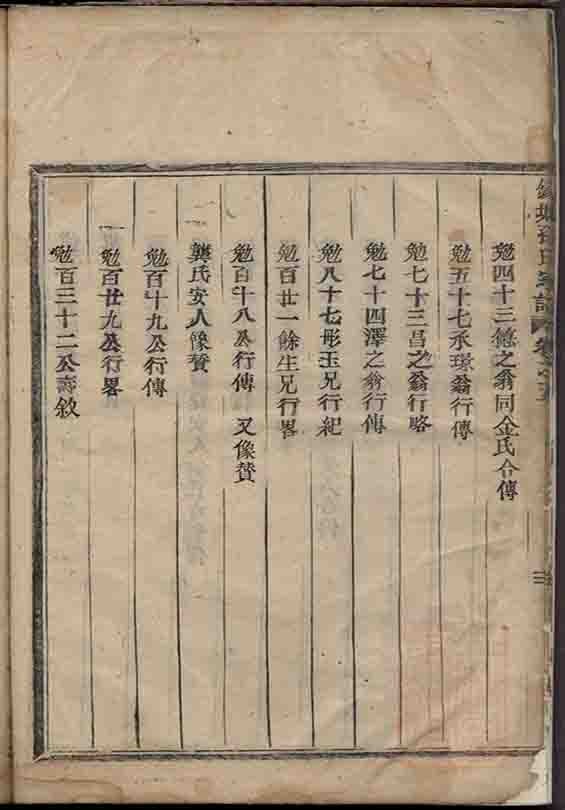 勉四十三德之翁同金氏合傳
勉五十七承璟翁行傳
勉七十三昌之翁行略
勉七十四澤之翁行傳
勉八十七彤玉兄行紀
勉百廿一餘生兄行畧
勉百十八公行傳 又像贊
龔氏安人像贊
勉百十九公行傳
勉百廿九公行畧
勉百三十二公壽敘